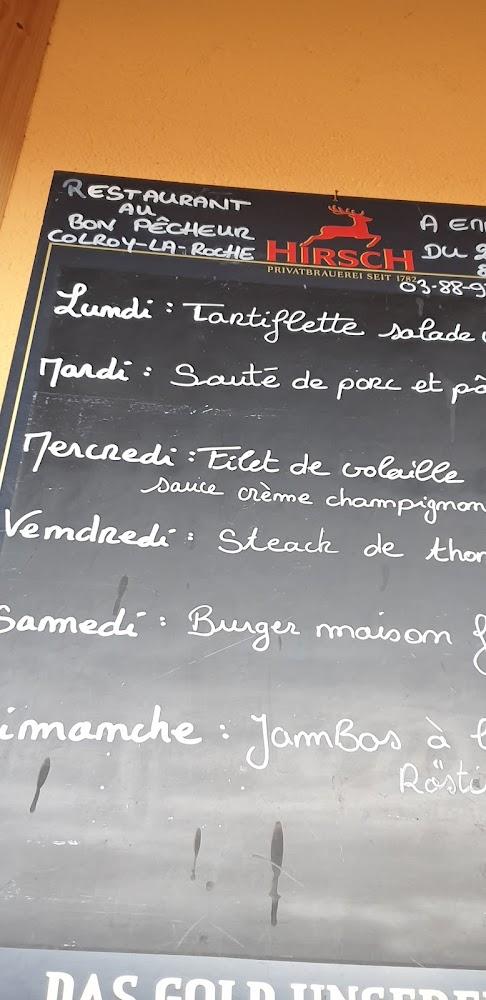 RESTAURANT
AU
BON PÊCHEUR
COLROY-LA-ROCHE
HIRSCH
PRIVATBRAUEREI SEIT 1782
A EN
DU
03-88-9
Lundi : Tartiflette salade
Mardi : Sauté de porc et pâ
Mercredi : Filet de volaille
sauce crème champignon
Vendredi : Steack de thon
Samedi : Burger maison f
imanche : JamBos à l
Rösti
DAS GOLD UNSERE